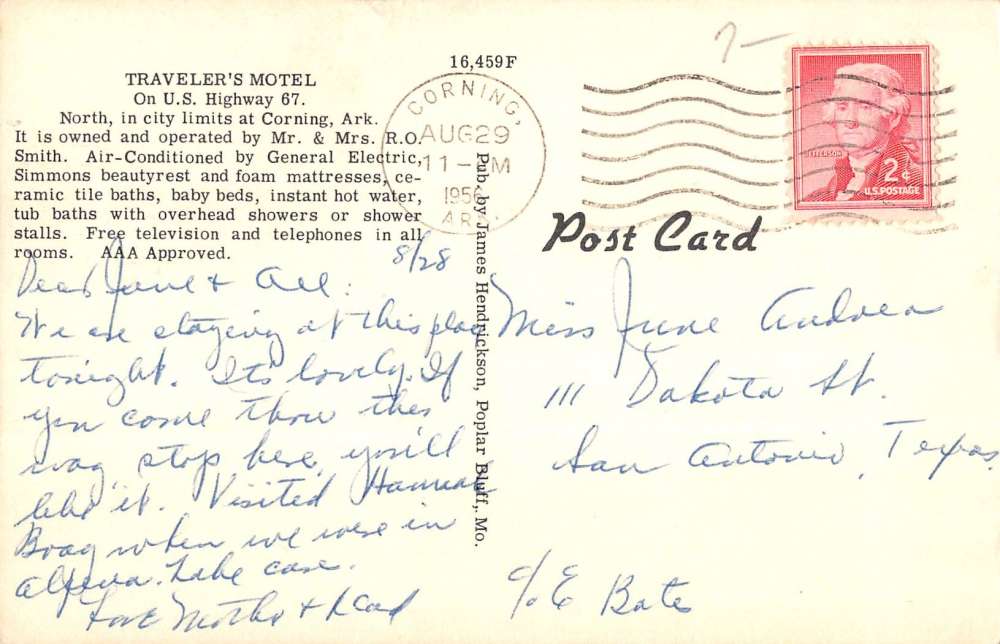 TRAVELER'S MOTEL
On U.S. Highway 67.
North, in city limits at Corning, Ark.
It is owned and operated by Mr. & Mrs. R.O.
Smith. Air-Conditioned by General Electric,
Simmons beautyrest and foam mattresses, ce-
ramic tile baths, baby beds, instant hot water,
tub baths with overhead showers or shower
stalls. Free television and telephones in all
rooms. AAA Approved.
8/28
Dear June & All:
We are staying at this place
tonight. Its lovely. If
you come throu this
way stop here, you'll
like it. Visited
when we were in
Take care.
Love Mother & Dad
16,459F
CORNING,
AUG 29
11 - PM
1956
ARK.
Pub. by James Hendrickson, Poplar Bluff, Mo.
JEFFERSON
2¢
U.S. POSTAGE
Post Card
Miss June
111 Dakota St.
San Antonio, Texas
c/o E Bates